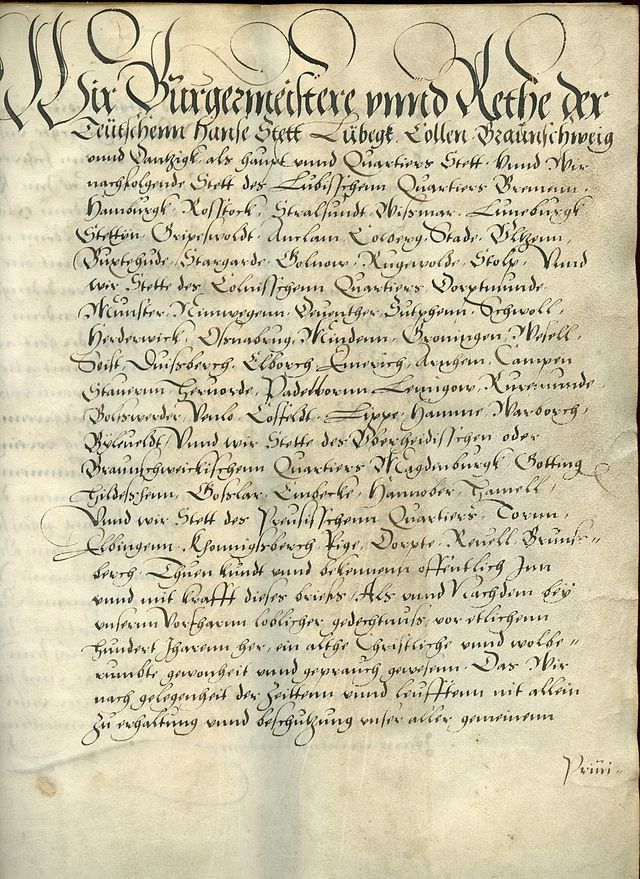 Wir Burgermeistere vnnd Rethe der
Teütschenn Hanse Stett Lubegk, Collen Braunschweig
vnnd Dantzigk als haupt vnnd Quartiers Stett. Vnnd Wir
nachfolgende Stett des Lubisschenn Quartiers Bremenn.
Hamburgk, Rosstock, Stralsundt, Wissmar. Luneburgk
Stettyn, Gripeswoldt, Anclam, Colberg, Stade, Vltzenn,
Buxtehude, Stargarde, Golnow, Rugewolde, Stolp, Vnnd
wir Stette des Colnisschenn Quartiers, Dorptmunde
Münster, Nimwegenn, Deuenther, Sutphenn, Schwoll,
Herderwick, Osnabrug, Mindenn, Groningen, Wesell,
Soist, Duissberch, Elborch Emerich, Arnhem, Campen
Stauernn, Heruorde, Padelbornn Lemigow, Ruremunde,
Bolsswerder, Venlo, Cosfeldt, Lippe, Hamme, Warborch,
Byleueldt, Vnnd wir Stette des Vberheidisschen oder
Braunschweickischenn Quartiers Magdenburgk Gotting
Hildesheim, Gosslar, Embecke, Hannober, Hamell,
Vnnd wir Stett des Preusisschenn Quartiers, Torun,
Elbingenn, Khonnigssberch, Rige, Dorpte, Reuell, Bruns-
berch, Thuen kundt vnd bekennenn offentlich Inn
vnnd mit krafft dieses brieffs, Als vnnd Nachdem bey
vnsernn Vorfharnn loblicher gedechtnuss, vor etlichenn
hundert Jharenn her, ein althe Christliche vnnd wolbe-
rumbte gewonheit vnnd geprauch gewesenn. Das Wir
nach gelegenheit der Zeittenn vnnd leufftenn nit allein
zu erhaltung vnnd beschutzung vnser aller gemeinenn
Priui-